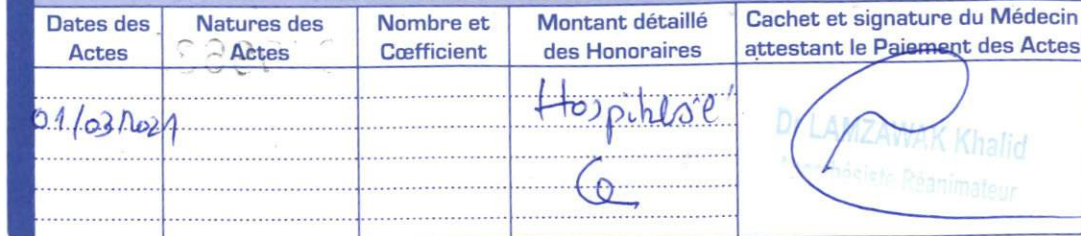 Dates des Actes
Natures des Actes
Nombre et Cœfficient
Montant détaillé des Honoraires
Cachet et signature du Médecin attestant le Paiement des Actes
01/03/2021
Hospitalisé
Dr LAMZAWAK Khalid
Réanimateur